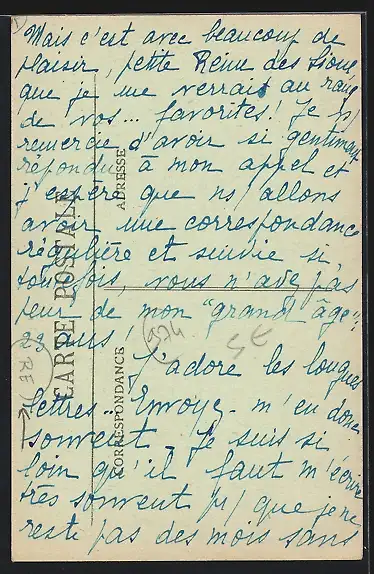 Mais c'est avec beaucoup de
plaisir, petite Reine des Sioux,
que je me verrais au rang
de vos... favorites! Je v/
remercie d'avoir si gentiment
répondu à mon appel et
j'espère que ns/ allons
avoir une correspondance
régulière et suivie si,
toutefois, vous n'avez pas
peur de mon "grand âge":
23 ans!
J'adore les longues
lettres... Envoyez-m'en donc
souvent. Je suis si
loin qu'il faut m'écrire
très souvent p/ que je ne
reste pas des mois sans
CARTE POSTALE
CORRESPONDANCE
ADRESSE
974
RE